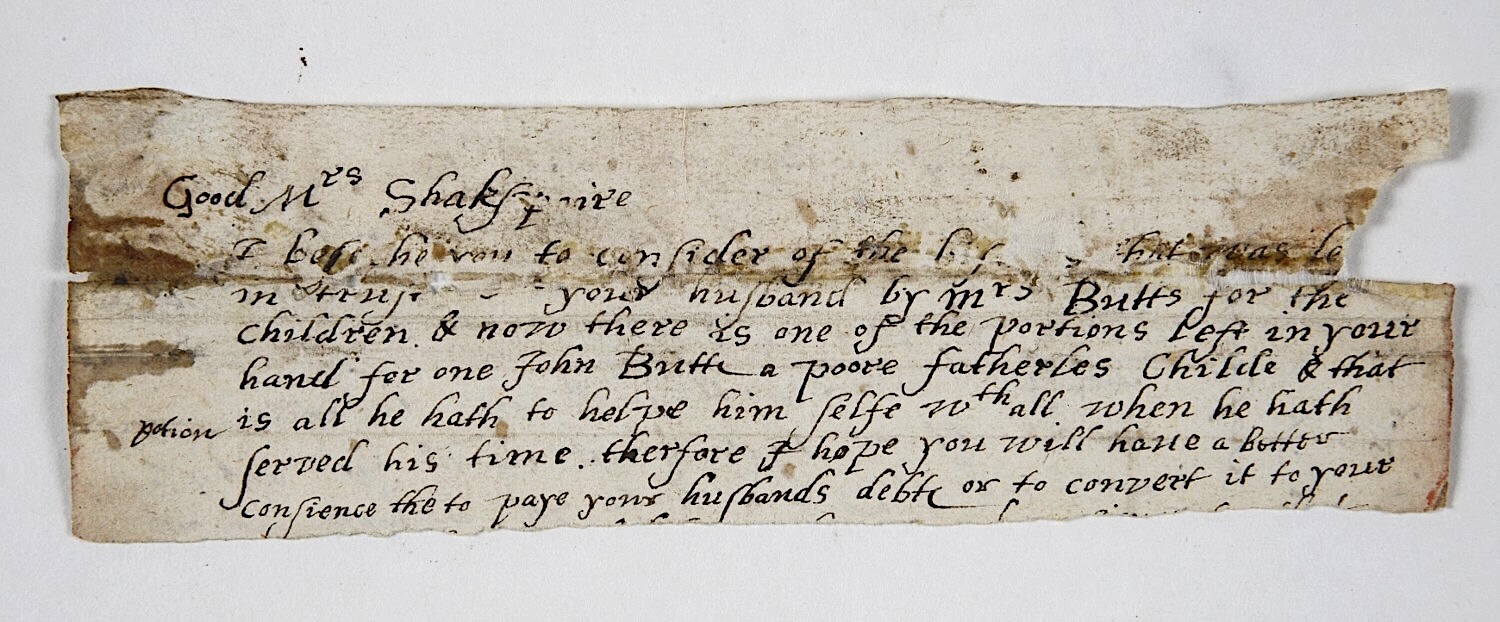 Good Mrs Shakspaire
I beseche you to consider of the that was le
in trust your husband by mrs Butts for the
children. & now there is one of the portions left in your
hand for one John Butte a poore fatherles Childe & that
potion is all he hath to helpe him selfe wth all when he hath
served his time. therfore I hope you will haue a better
consience the to paye your husbands debte or to convert it to your